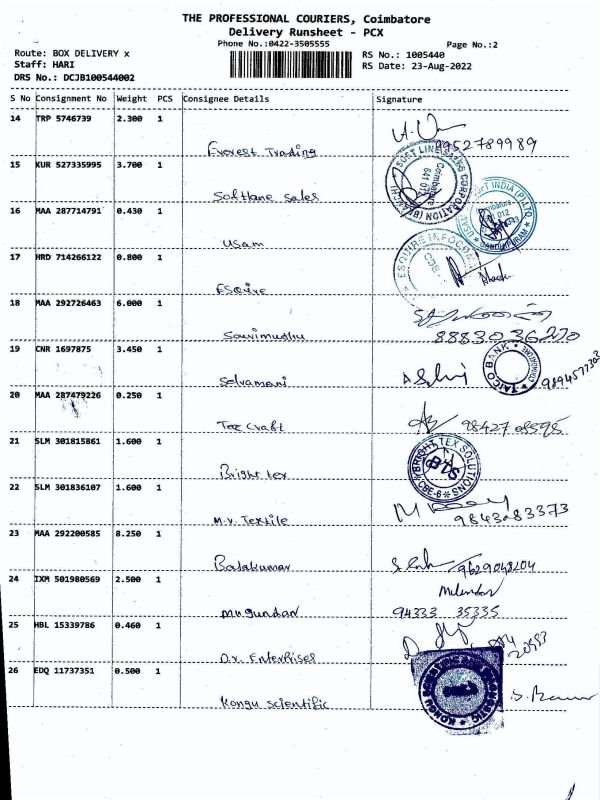 THE PROFESSIONAL COURIERS, Coimbatore
Delivery Runsheet - PCX
Phone No.:0422-3505555
Page No.:2
Route: BOX DELIVERY x
RS No.: 1005440
Staff: HARI
RS Date: 23-Aug-2022
DRS No.: DCJB100544002
S No Consignment No Weight PCS Consignee Details Signature
14 TRP 5746739 2.300 1
Everest Trading 9952789989
15 KUR 527335995 3.700 1
Softlane Sales
SOFT LINE SALES CORPORATION
Coimbatore
16 MAA 287714791 0.430 1
Usam
17 HRD 714266122 0.800 1
ESQUIRE INFOCOM
Esquire
18 MAA 292726463 6.000 1
Sowimuthu 8883036270
19 CNR 1697875 3.450 1
TAICO BANK
Selvamani
20 MAA 287479226 0.250 1
Tee craft
21 SLM 301815861 1.600 1
BRIGHT TEX SOLUTIONS
BTS
CBE-6
Bright tex
22 SLM 301836107 1.600 1
M.V. Textile 9843283373
23 MAA 292200585 8.250 1
Balakumar 9629048204
24 IXM 501980569 2.500 1
94333 35335
25 HBL 15339786 0.460 1
D.V. Enterprises
26 EDQ 11737351 0.500 1
Kongu scientific